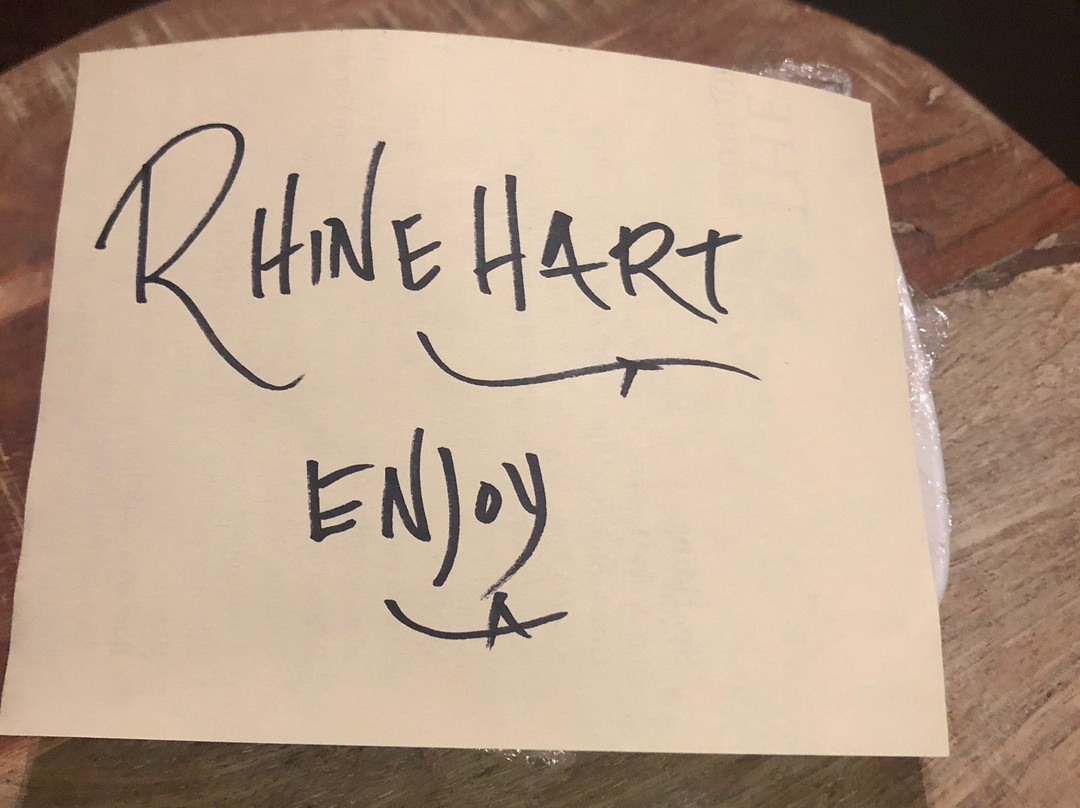 RHINEHART
ENJOY